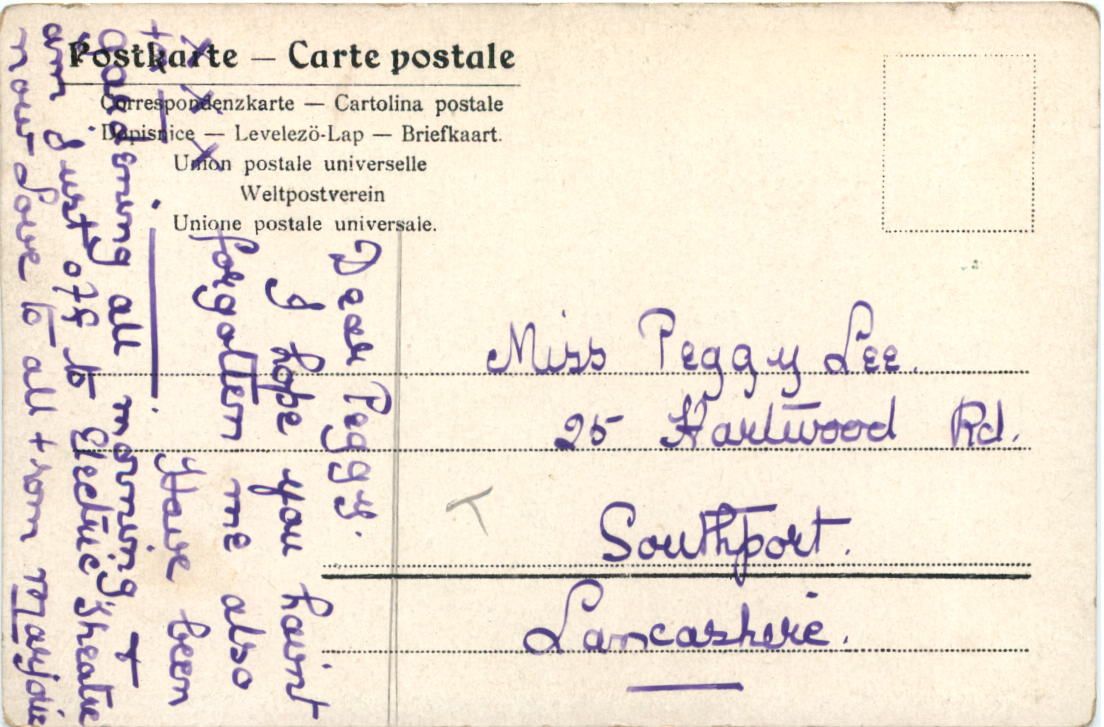 Postkarte — Carte postale
Correspondenzkarte — Cartolina postale
Dopisnice — Levelező-Lap — Briefkaart.
Union postale universelle
Weltpostverein
Unione postale universale.
Dear Peggy.
I hope you havint
forgotten me also
x x x
Have been
gardening all morning, +
am just off to Electric Theatre
now Love to all from Marjorie
Miss Peggy Lee.
25 Hartwood Rd.
Southport.
Lancashire.